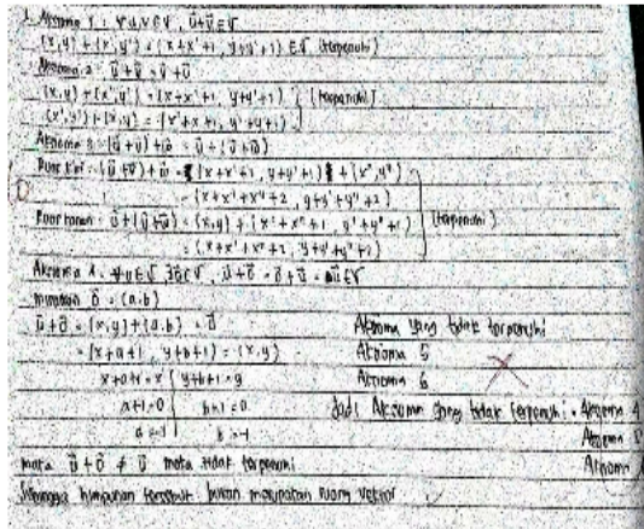 1. Aksioma 1 : ∀ u,v ∈ V, ū+v̄ ∈ V
(x,y) + (x',y') = (x+x'+1, y+y'+1) ∈ V (terpenuhi)
Aksioma 2 : ū+v̄ = v̄+ū
(x,y) + (x',y') = (x+x'+1, y+y'+1) } (terpenuhi)
(x',y') + (x,y) = (x'+x+1, y'+y+1)
Aksioma 3 : (ū+v̄)+w̄ = ū+(v̄+w̄)
Ruas kiri = (ū+v̄)+w̄ = (x+x'+1, y+y'+1) + (x'',y'')
= (x+x'+x''+2, y+y'+y''+2)
Ruas kanan = ū+(v̄+w̄) = (x,y) + (x'+x''+1, y'+y''+1) (terpenuhi)
= (x+x'+x''+2, y+y'+y''+2)
Aksioma 4. ∀ u ∈ V, ∃ō ∈ V, ū+ō = ō+ū = ū ∈ V
misalkan ō = (a,b)
ū+ō = (x,y)+(a,b) = ū
= (x+a+1, y+b+1) = (x,y)
x+a+1 = x | y+b+1 = y
a+1=0 | b+1=0
a=-1 | b=-1
maka ū+ō ≠ ū maka tidak terpenuhi
Sehingga himpunan tersebut bukan merupakan ruang vektor
Aksioma yang tidak terpenuhi
Aksioma 5
Aksioma 6
Jadi Aksioma yang tidak terpenuhi = Aksioma
Aksioma
Aksioma